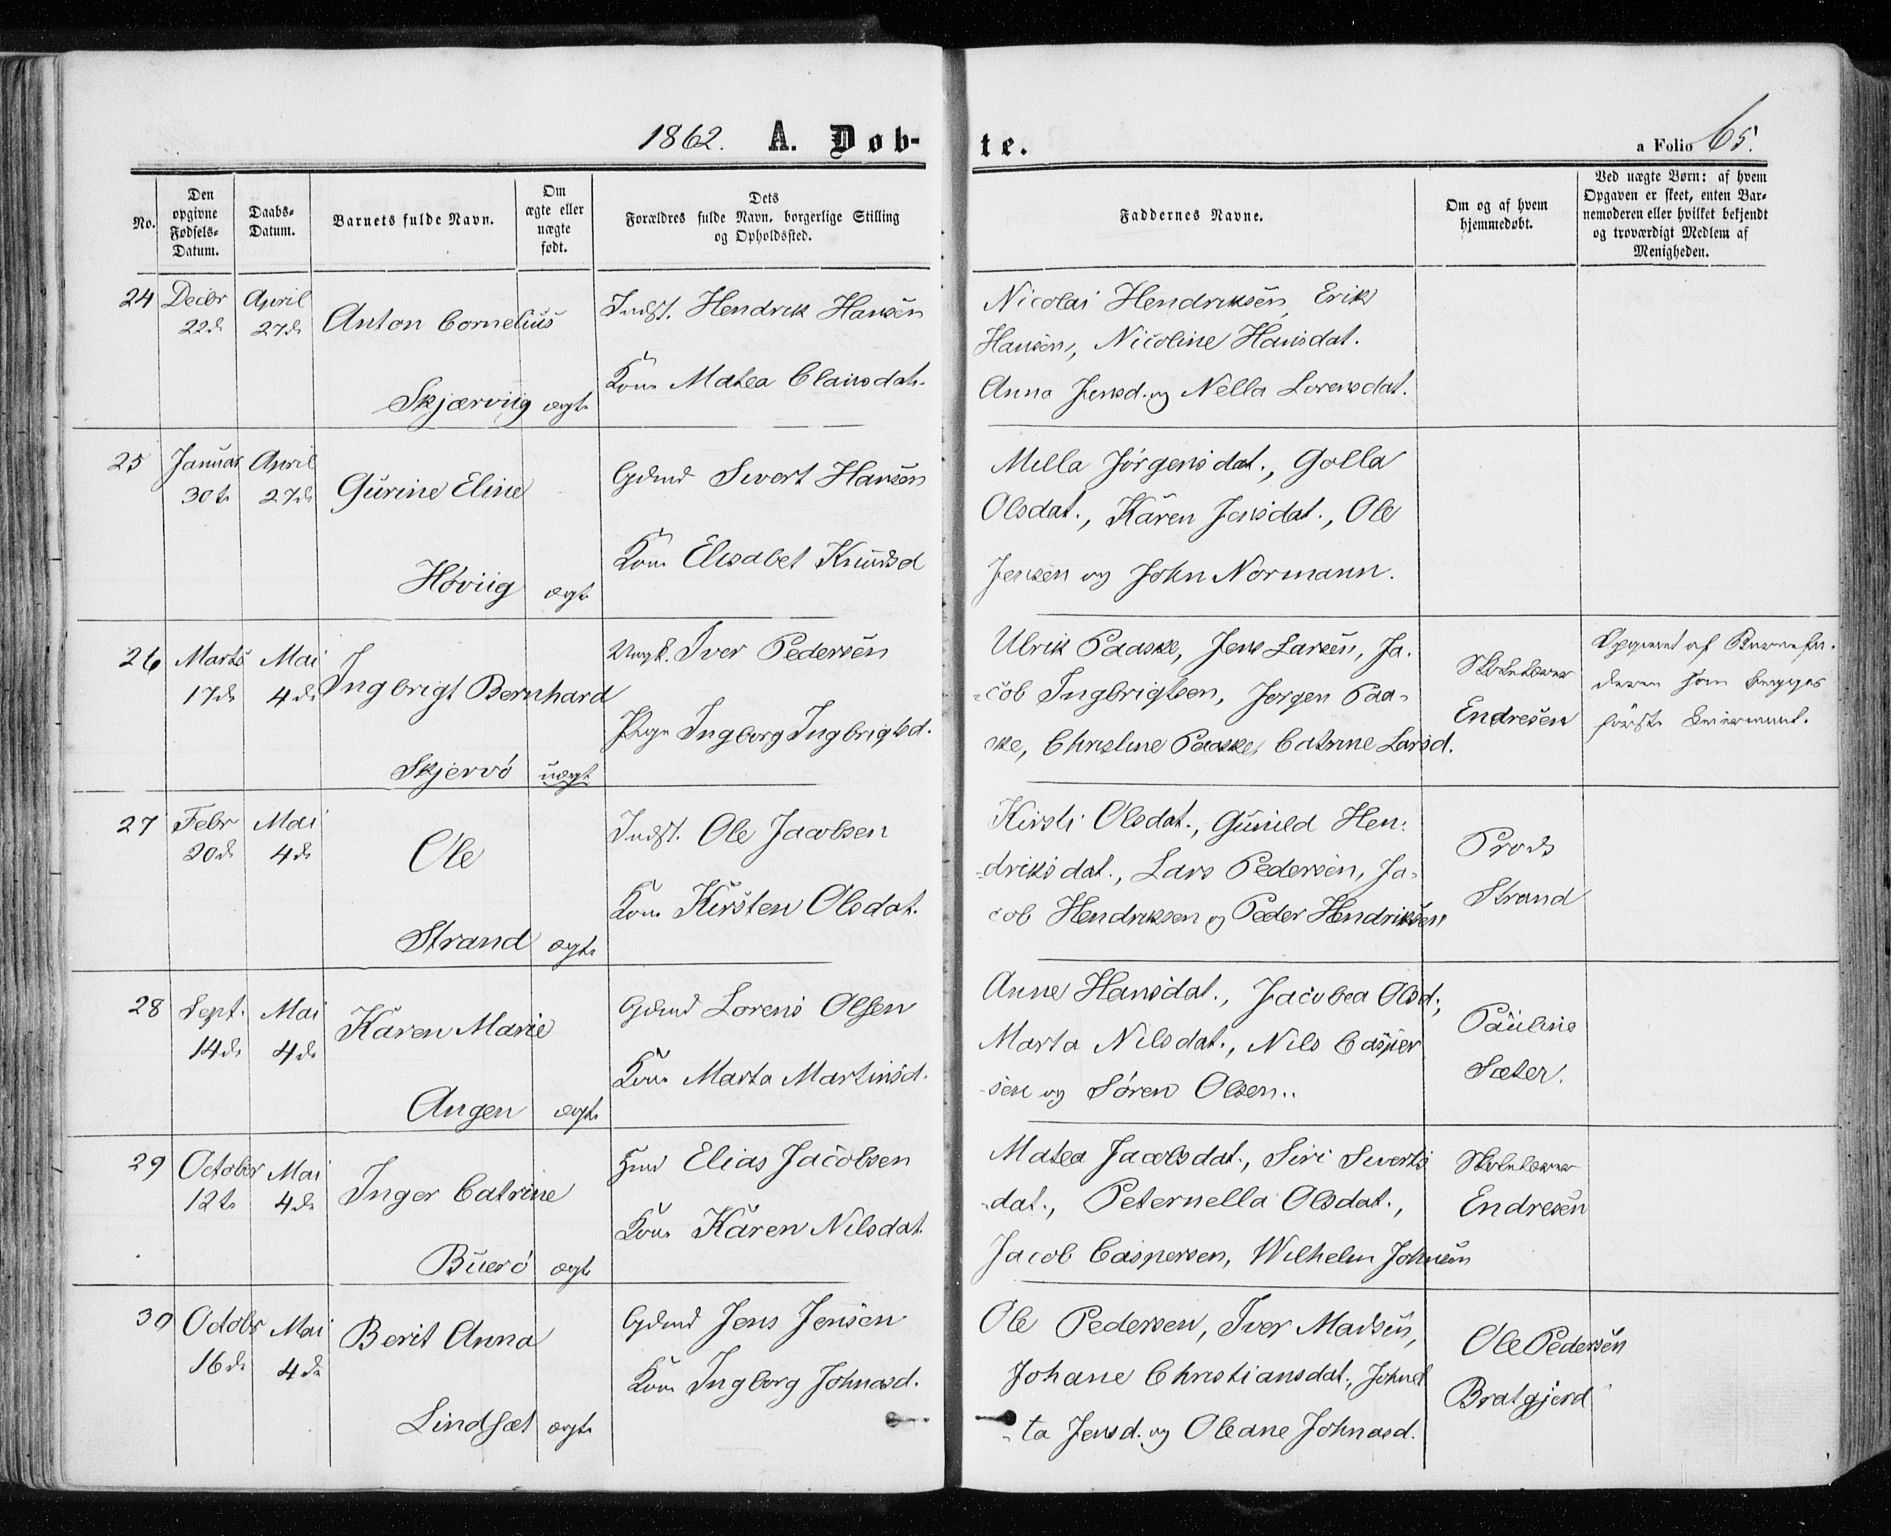 1862. A. Døb-te. a Folio 65.
No.
Den opgivne Fødsels-Datum.
Daabs-Datum.
Barnets fulde Navn.
Om ægte eller uægte født.
Dets Forældres fulde Navn, borgerlige Stilling og Opholdssted.
Faddernes Navne.
Om og af hvem hjemmedøbt.
Ved uægte Børn: af hvem Opgaven er skeet, enten Barnemoderen eller hvilket bekjendt og troværdigt Medlem af Menigheden.
24 Decbr 22d April 27d Anton Cornelius
Skjærviig ægte
Indst. Hendrik Hansen
Kone Matea Clausdat.
Nicolai Hendriksen, Erik
Hansen, Nicoline Hansdat.
Anna Jensd. og Nella Lorensdat.
25 Januar 30te April 27d Gurine Eline
Høviig ægte
Gdmd Sivert Hansen
Kone Elisabet Knudsd
Mella Jørgensdat., Golla
Olsdat., Karen Jensdat., Ole
Jensen og John Normann.
26 Marts 17d Mai 4d Ingbrigt Bernhard
Skjervö uægt
Ungk. Iver Pedersen
Pige Ingborg Ingbrigtsd.
Ulrik Paaske, Jens Larsen, Ja-
-cob Ingbrigtsen, Jørgen Paa-
ske, Christine Paaske, Catrine Larsd.
Skolelærer
Endresen
Opgivet af Barnefa-
deren som begges
første Leiermaal.
27 Febr 20d Mai 4d Ole
Strand ægte
Indst. Ole Jacobsen
Kone Kirsten Olsdat.
Kirsti Olsdat., Gunild Hen-
-driksdat., Lars Pedersen, Ja-
cob Hendriksen og Peder Hendriksen
Strand
28 Sept. 14d Mai 4d Karen Marie
Angen ægte
Gdmd Lorens Olsen
Kone Marta Martinsd.
Anne Hansdat., Jacobea Olsd.,
Marta Nilsdat., Nils Casper
-sen og Søren Olsen..
Pauline
Sæter.
29 October 12te Mai 4d Inger Catrine
Buerö ægte
Hmd Elias Jacobsen
Kone Karen Nilsdat.
Matea Jacobsdat., Siri Siverts
-dat., Peternella Olsdat.,
Jacob Caspersen, Wilhelm Johnsen
Skolelærer
Endresen
30 Octobr 16d Mai 4de Berit Anna
Lindsæt ægte
Gdmd Jens Jensen
Kone Ingborg Johnasd.
Ole Pedersen, Iver Madsen,
Johane Christiansdat., Johnet
-ta Jensd. og Oleane Johnasd.
Ole Pedersen
Bratgjerd